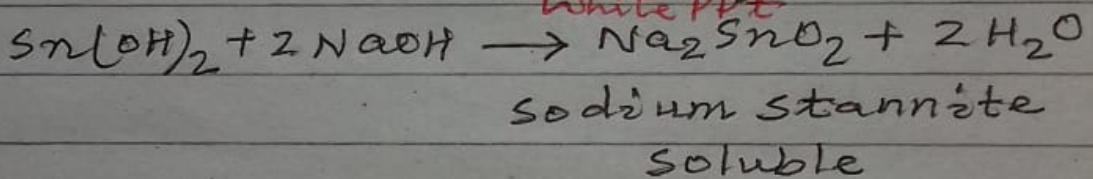 White PPt
Sn(OH)₂ + 2 NaOH ⟶ Na₂SnO₂ + 2 H₂O
sodium stannite
soluble